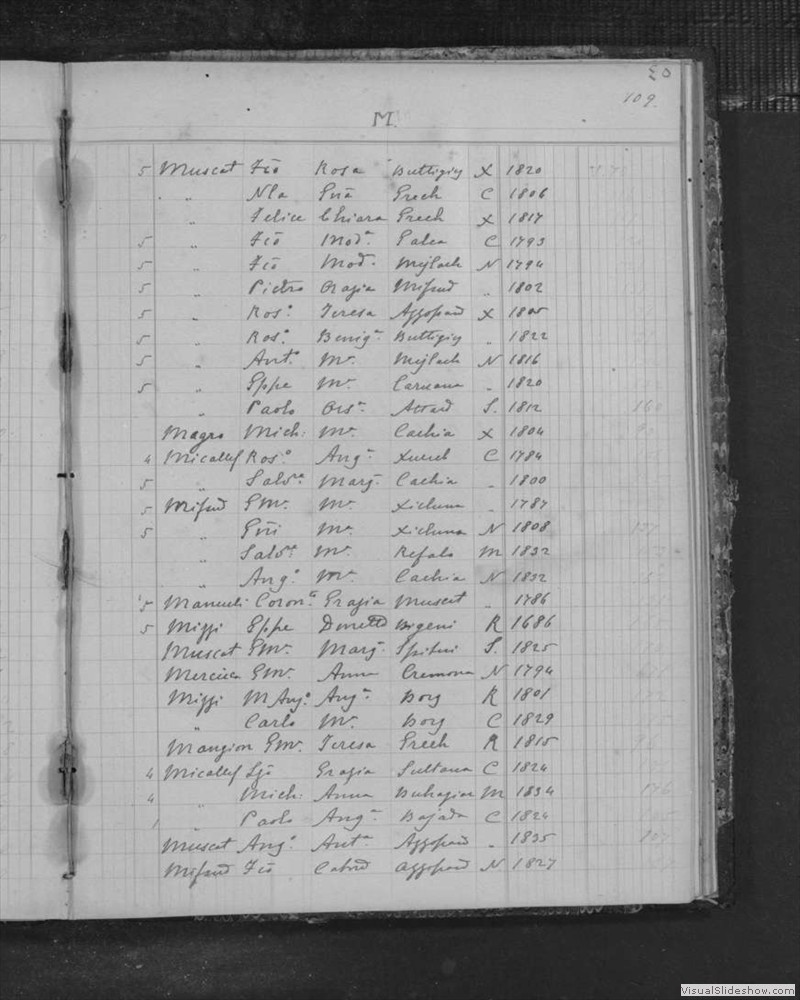 109.
M.
5 Muscat Fco Rosa Buttigieg X 1820
" Nla Gna Grech C 1806
" Felice Chiara Grech X 1817
5 " Fco Mada Galea C 1793
5 " Fco Mada Mejlach N 1794
5 " Pietro Grazia Mifsud " 1802
5 " Roso Teresa Azzopard X 1805
5 " Roso Beniga Buttigieg " 1822
5 " Anto Ma Mejlach N 1816
5 " Gppe Ma Caruana " 1820
" Paolo Orsa Attard S. 1812
Magro Mich: Ma Cachia X 1804
4 Micallef Roso Anga Xuereb C 1784
5 " Salvre Marg Cachia " 1800
5 Mifsud Emo Ma Xicluna " 1787
5 " Gni Ma Xicluna N 1808
" Salvre Ma Refalo M 1832
" Ango Ma Cachia N 1832
5 Manueli Corona Grazia Muscat " 1786
5 Mizzi Gppe Donetta R 1686
Muscat Emo Marg Spiteri S. 1825
Mercieca Emo Anna Cremona N 1794
Mizzi M Ango Anga Borg R 1801
" Carlo Ma Borg C 1829
Mangion Emo Teresa Grech R 1815
4 Micallef Lgi Grazia Sultana C 1824
4 " Mich: Anna Buhagiar M 1834
1 " Paolo Anga Bajada C 1824
Muscat Ango Anta Azzopard " 1835
Mifsud Fco Azzopard N 1827
VisualSlideshow.com